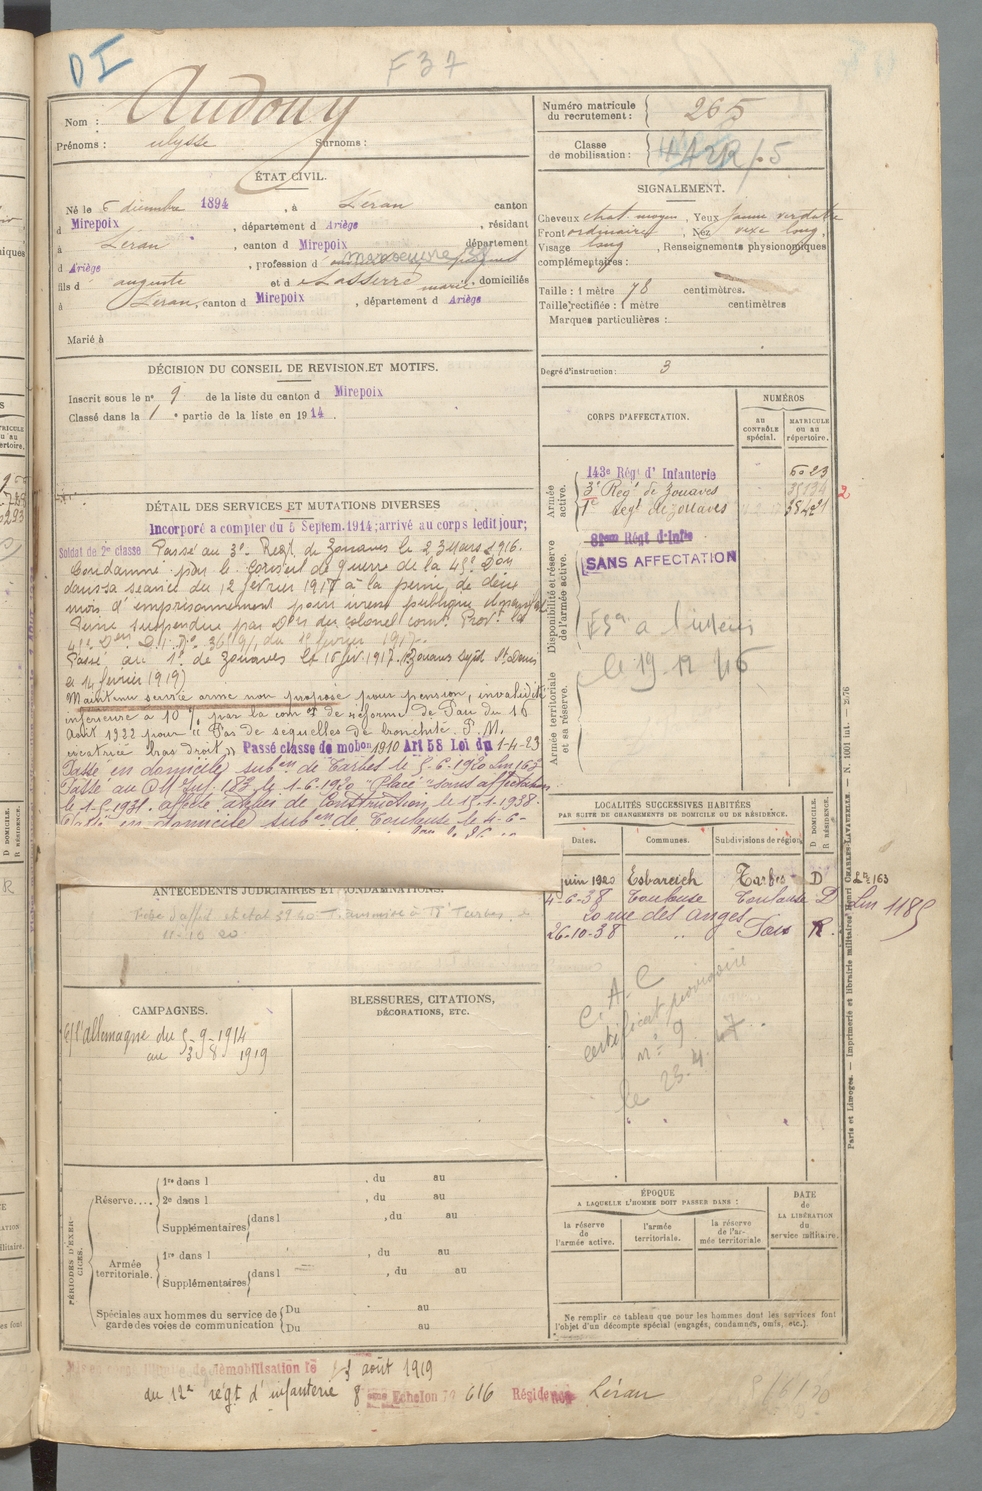 DI
F37
Nom : Audouy
Prénoms : Ulysse Surnoms :
Numéro matricule du recrutement : 265
Classe de mobilisation :
ÉTAT CIVIL.
Né le 6 décembre 1894, à Léran canton
d Mirepoix, département d Ariège, résidant
à Léran, canton d Mirepoix département
d Ariège, profession d manoeuvre
fils d auguste et d Lasserre marie, domiciliés
à Léran, canton d Mirepoix, département d Ariège
Marié à
SIGNALEMENT.
Cheveux chat. moyen, Yeux jaune verdatre
Front ordinaire, Nez vexe long,
Visage long, Renseignements physionomiques
complémentaires :
Taille : 1 mètre 78 centimètres.
Taille rectifiée : 1 mètre centimètres
Marques particulières :
Degré d'instruction : 3
DÉCISION DU CONSEIL DE REVISION ET MOTIFS.
Inscrit sous le n° 9 de la liste du canton d Mirepoix
Classé dans la 1e partie de la liste en 1914.
CORPS D'AFFECTATION.
NUMÉROS
AU CONTRÔLE spécial.
MATRICULE ou au répertoire.
Armée active.
143e Régt d'Infanterie 6023
3e Régt de Zouaves 35134
1e Régt de Zouaves 35421
2
Disponibilité et réserve de l'armée active.
81eme Régt d'Infie
SANS AFFECTATION
le 19 12 46
Armée territoriale et sa réserve.
DÉTAIL DES SERVICES ET MUTATIONS DIVERSES
Incorporé a compter du 5 Septem. 1914; arrivé au corps ledit jour;
Soldat de 2e classe Passé au 3e Regt de Zouaves le 23 mars 1916.
Condamné par le Conseil de Guerre de la 45e Don
dans sa séance du 12 février 1917 à la peine de deux
mois d'emprisonnement pour ivresse publique
Peine suspendue par Don du colonel comt Provt la
45e Don D.I. No 3619/1, du 15 février 1917.
Passé au 1e de Zouaves le 16 fév. 1917. (Zouaves dépôt St Denis
le 14 février 1919)
Maintenu service armé non proposé pour pension, invalidité
inférieure à 10 % par la comon de réforme de Pau du 16
Août 1922 pour "Pas de sequelles de bronchite. P.M.
cicatrice bras droit" Passé classe de mobon 1910 Art 58 Loi du 1-4-23
Passé en domicile subon de Tarbes le 5-6-1920 Lin 163
le 1-5-1931. affecté atelier de Construction, le 15-1-1938.
en domicile subon de Toulouse le 4-6-
LOCALITÉS SUCCESSIVES HABITÉES
PAR SUITE DE CHANGEMENTS DE DOMICILE OU DE RÉSIDENCE.
D DOMICILE. R RÉSIDENCE.
Dates. Communes. Subdivisions de région.
juin 1920 Esbareich Tarbes D Ln 163
4-6-38 Toulouse Toulouse D Lin 1185
20 rue des anges
26-10-38 " R.
C.A.C
certificat provisoire
n° 9
le 23.4.47
ANTÉCÉDENTS JUDICIAIRES ET CONDAMNATIONS.
11-10-20
CAMPAGNES.
C/ l'allemagne du 5-9-1914
au 3 8 1919
BLESSURES, CITATIONS,
DÉCORATIONS, ETC.
PÉRIODES D'EXERCICES.
Réserve.... 1re dans l , du au
2e dans l , du au
Supplémentaires dans l , du au
Armée territoriale. 1re dans l , du au
Supplémentaires dans l , du au
Spéciales aux hommes du service de garde des voies de communication Du au
Du au
ÉPOQUE
A LAQUELLE L'HOMME DOIT PASSER DANS :
la réserve de l'armée active.
l'armée territoriale.
la réserve de l'armée territoriale
DATE de LA LIBÉRATION du service militaire.
Ne remplir ce tableau que pour les hommes dont les services font
l'objet d'un décompte spécial (engagés, condamnés, omis, etc.).
Paris et Limoges. — Imprimerie et librairie militaires Henri CHARLES-LAVAUZELLE. — N. 1001 Int.
démobilisation le 3 août 1919
du 12e régt d'infanterie 8 eme Echelon N° 616 Résidence Léran